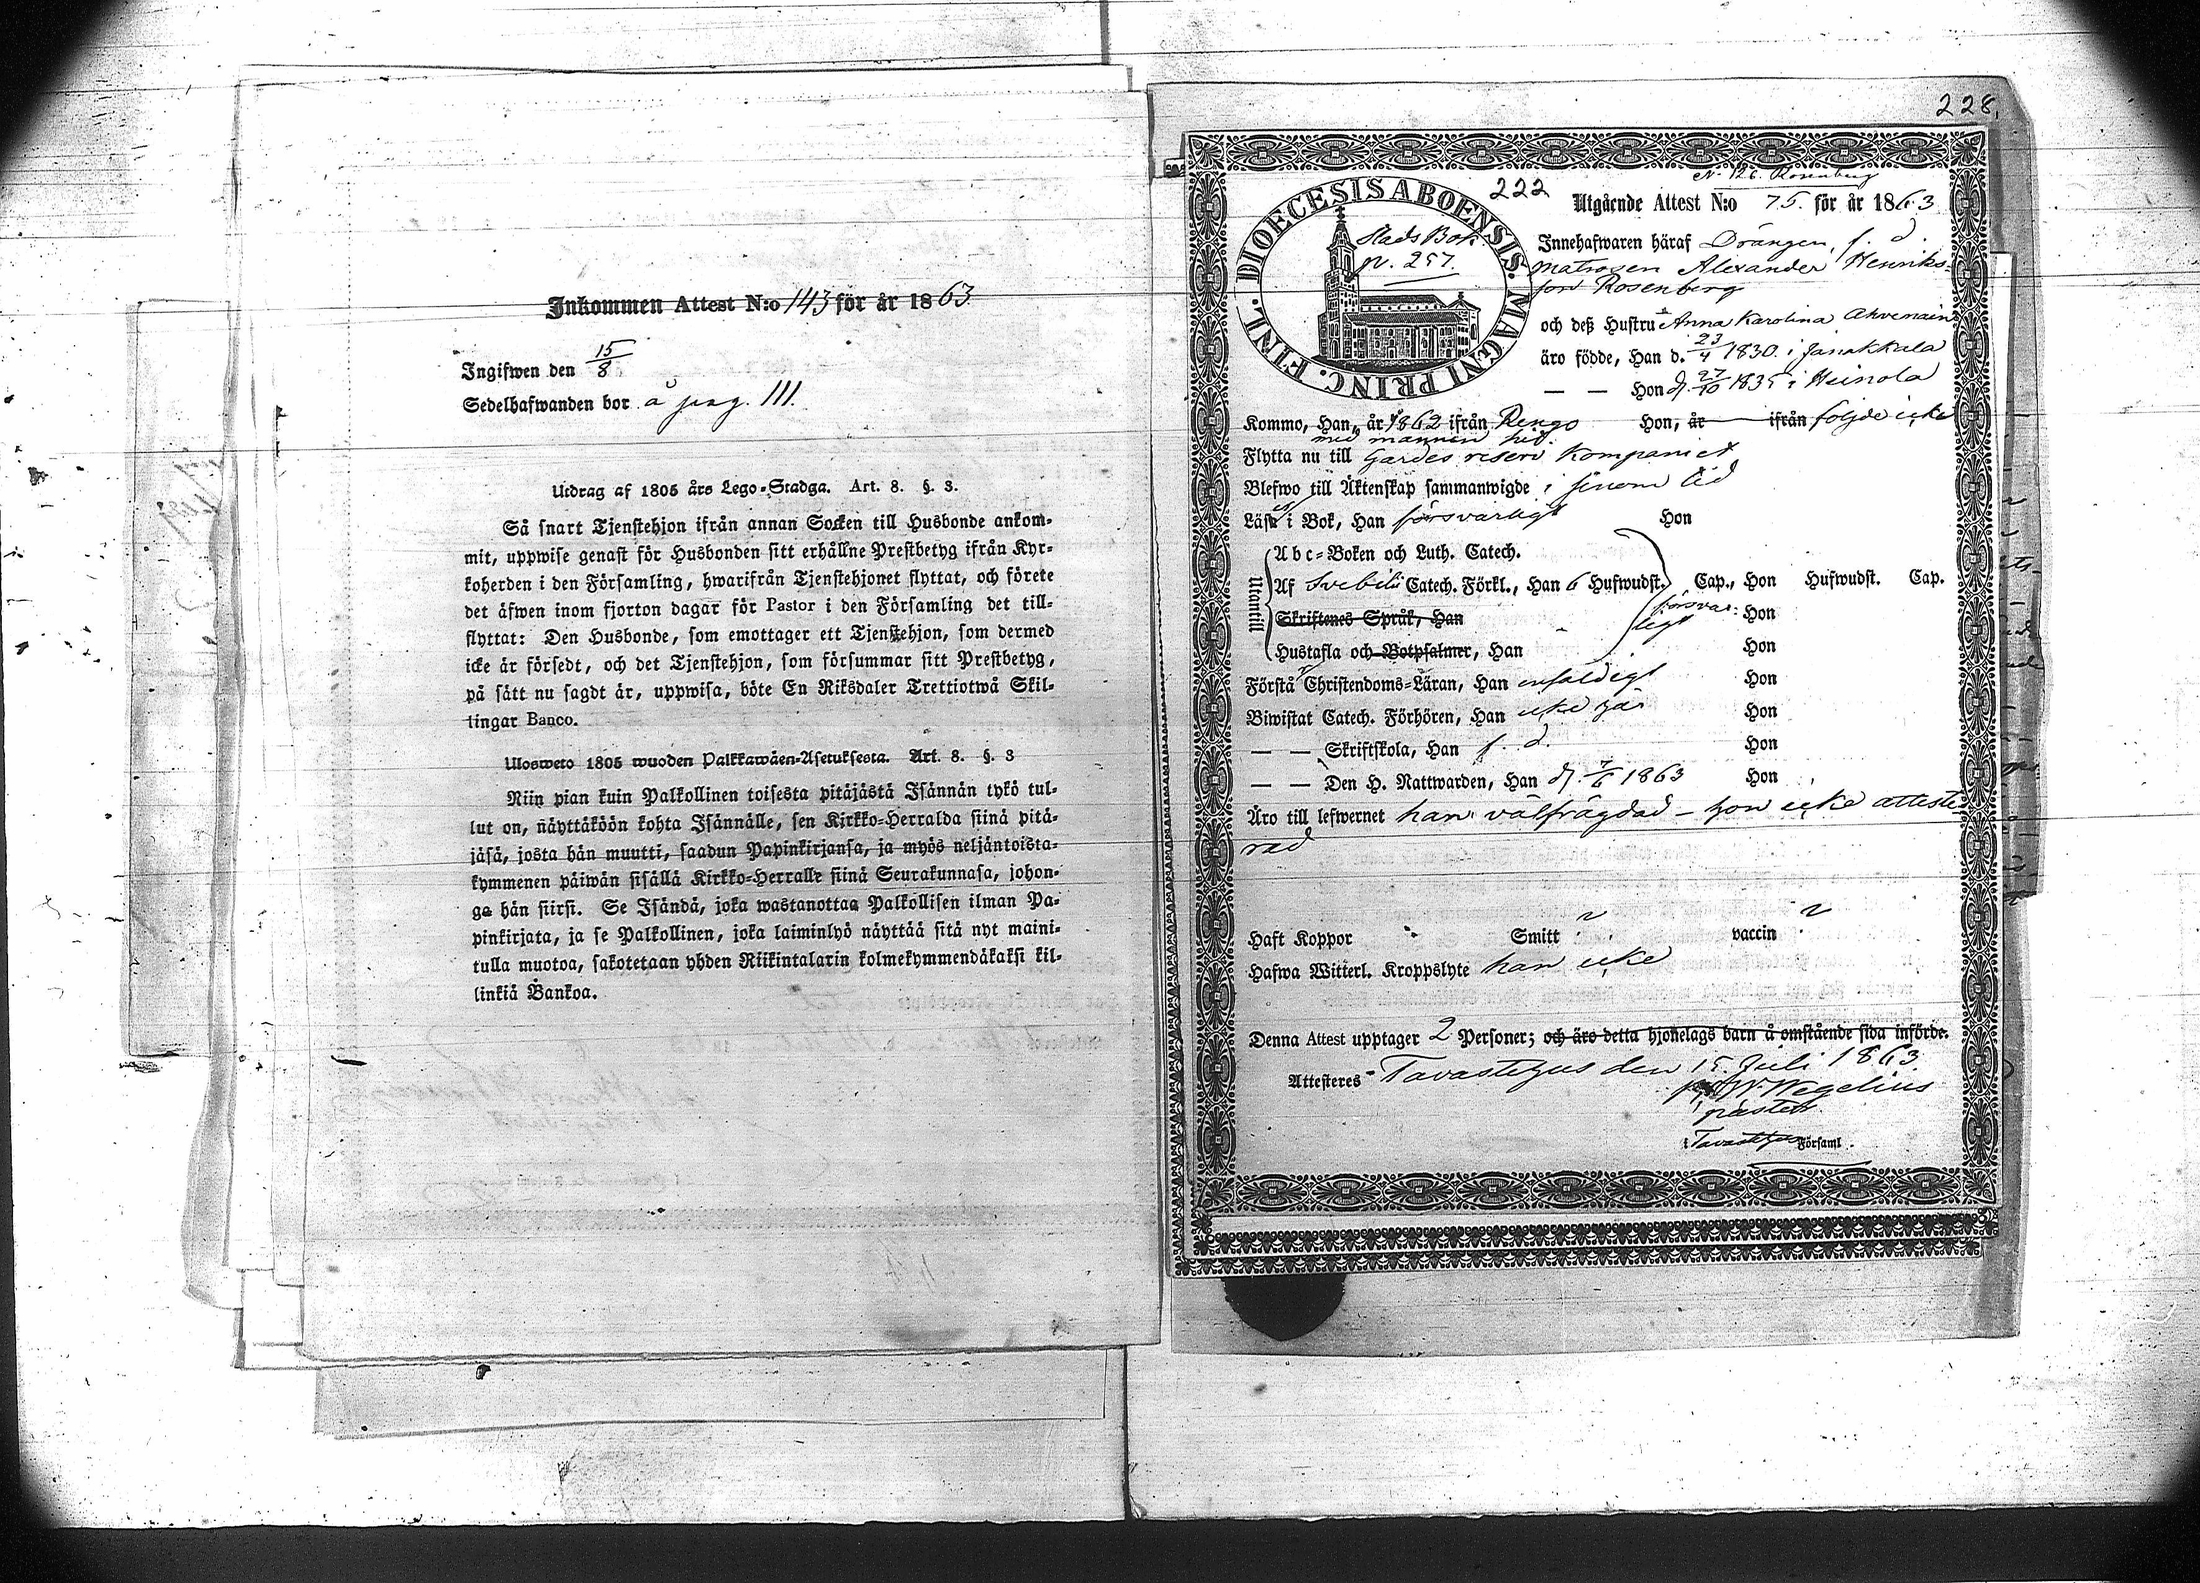 Inkommen Attest N:o 143 för år 1863
Ingifwen den 15/8
Sedelhafwanden bor å pag. 111.
Utdrag af 1805 års Lego-Stadga. Art. 8. §. 3.
Så snart Tjenstehjon ifrån annan Socken till Husbonde ankom-
mit, uppwise genast för Husbonden sitt erhållne Prestbetyg ifrån Kyr-
koherden i den Församling, hwarifrån Tjenstehjonet flyttat, och förete
det äfwen inom fjorton dagar för Pastor i den Församling det till-
flyttat: Den Husbonde, som emottager ett Tjenstehjon, som dermed
icke är försedt, och det Tjenstehjon, som försummar sitt Prestbetyg,
på sätt nu sagdt är, uppwisa, böte En Riksdaler Trettiotwå Skil-
lingar Banco.
Ulosweto 1805 wuoden Palkkawäen-Asetuksesta. Art. 8. §. 3
Niin pian kuin Palkollinen toisesta pitäjästä Isännän tykö tul-
lut on, näyttäköön kohta Isännälle, sen Kirkko-Herralda siinä pitä-
jäsä, josta hän muutti, saadun Papinkirjansa, ja myös neljäntoista-
kymmenen päiwän sisällä Kirkko-Herralle siinä Seurakunnasa, johon-
ga hän siirsi. Se Isändä, joka wastanottaa Palkollisen ilman Pa-
pinkirjata, ja se Palkollinen, joka laiminlyö näyttää sitä nyt maini-
tulla muotoa, sakotetaan yhden Riikintalarin kolmekymmendäkaksi kil-
linkiä Bankoa.
228.
N. 126. Rosenberg
222
DIOECESIS ABOENSIS. MAGNI PRINC. FINL.
Stads Bok
N. 257.
Utgående Attest N:o 75. för år 1863
Innehafwaren häraf Drängen, f. d.
matrosen Alexander Henriks-
son Rosenberg
och deß Hustru Anna Karolina Ahvenain
äro födde, Han d. 23/4 1830. i Janakkala
— — Hon d. 27/10 1835 i Heinola
Kommo, Han, år 1862 ifrån Rengo Hon, år ifrån följde icke
med mannen hit.
Flytta nu till Gardes reserv Kompaniet
Blefwo till Äktenskap sammanwigde i sinom tid
Läsa i Bok, Han försvarligt Hon
Utantill
Abc-Boken och Luth. Catech.
Af Svebilii Catech. Förkl., Han 6 Hufwudst. Cap., Hon Hufwudst. Cap.
Skriftenes Språk, Han försvar- Hon
ligt
Hustafla och Botpsalmer, Han Hon
Förstå Christendoms-Läran, Han enfaldigt Hon
Biwistat Catech. Förhören, Han icke här Hon
— — Skriftskola, Han f. d. Hon
— — Den H. Nattwarden, Han d. 7/6 1863 Hon
Äro till lefwernet han välfrägdad – hon icke atteste
rad
Haft Koppor Smitt vaccin
Hafwa Witterl. Kroppslyte han icke
Denna Attest upptager 2 Personer; och äro detta hjonelags barn å omstående sida införde.
Attesteres Tavastehus den 15. Juli 1863.
Wegelius
pastor
i Tavastehus Församl.